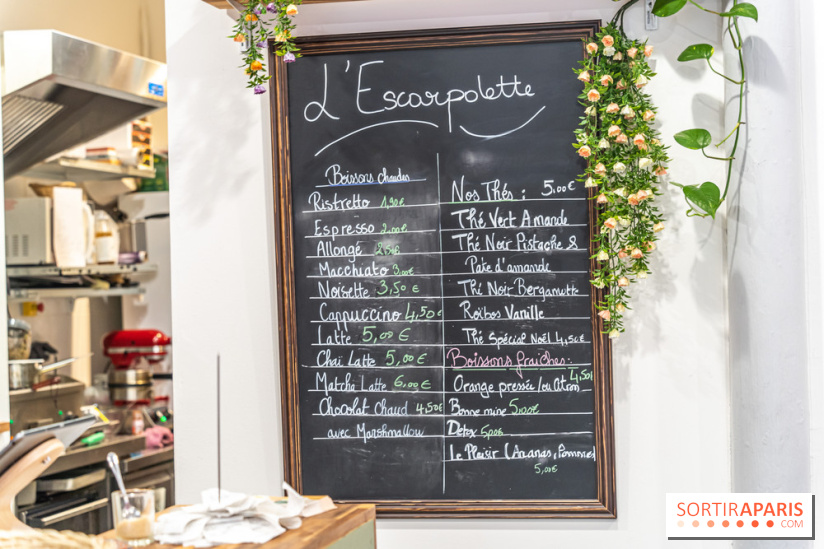 L'Escarpolette
Boissons chaudes
Ristretto 1,90€
Espresso 2,00€
Allongé 2,50€
Macchiato 3,00€
Noisette 3,50€
Cappuccino 4,50€
Latte 5,00€
Chaï Latte 5,00€
Matcha Latte 6,00€
Chocolat Chaud 4,50€
avec Marshmallow
Nos Thés : 5,00€
Thé Vert Amande
Thé Noir Pistache &
Pate d'amande
Thé Noir Bergamotte
Roïbos Vanille
Thé Spécial Noël 4,50€
Boissons fraîches:
Orange pressée /ou citron 4,50€
Bonne mine 5,00€
Détox 5,00€
Le Plaisir (Ananas, Pommes)
5,00€
SORTIRAPARIS
.COM